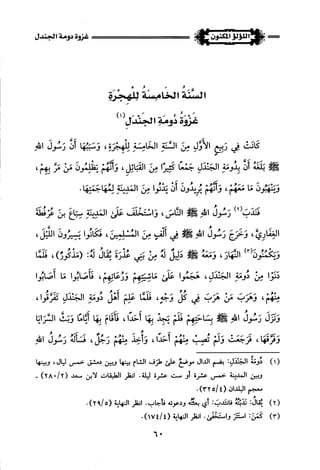 اللؤلؤ المكنون
غزوة دومة الجندل
السَّنَةُ الخَامِسَةُ لِلْهِجْرَةِ
غَزْوَةُ دُومَةِ الجَنْدَلِ (١)
كَانَتْ فِي رَبِيعٍ الأَوَّلِ مِنَ السَّنَةِ الخَامِسَةِ لِلْهِجْرَةِ، وَسَبَبُهَا أَنَّ رَسُولَ اللهِ
ﷺ بَلَغَهُ أَنَّ بِدُومَةِ الجَنْدَلِ جَمْعًا كَثِيرًا مِنَ القَبَائِلِ، وَأَنَّهُمْ يَظْلِمُونَ مَنْ مَرَّ بِهِمْ،
وَيَنْهَبُونَ مَا مَعَهُمْ، وَأَنَّهُمْ يُرِيدُونَ أَنْ يَدْنُوا مِنَ المَدِينَةِ لِمُهَاجَمَتِهَا.
فَنَدَبَ (٢) رَسُولُ اللهِ ﷺ النَّاسَ، وَاسْتَخْلَفَ عَلَى المَدِينَةِ سِبَاعَ بنَ عُرْفُطَةَ
الغِفَارِيَّ، وَخَرَجَ رَسُولُ اللهِ ﷺ فِي أَلْفٍ مِنَ المُسْلِمِينَ، فَكَانُوا يَسِيرُونَ اللَّيْلَ،
وَيَكْمُنُونَ (٣) النَّهَارَ، وَمَعَهُ ﷺ دَلِيلٌ لَهُ مِنْ بَنِي عُذْرَةَ يُقَالُ لَهُ: (مَذْكُورٌ)، فَلَمَّا
دَنَوْا مِنْ دُومَةِ الجَنْدَلِ، هَجَمُوا عَلَى مَاشِيَتِهِمْ وَرُعَاتِهِمْ، فَأَصَابُوا مَا أَصَابُوا
مِنْهُمْ، وَهَرَبَ مَنْ هَرَبَ فِي كُلِّ وَجْهٍ، فَلَمَّا عَلِمَ أَهْلُ دُومَةِ الجَنْدَلِ تَفَرَّقُوا،
وَنَزَلَ رَسُولُ اللهِ ﷺ بِسَاحَتِهِمْ فَلَمْ يَجِدْ بِهَا أَحَدًا، فَأَقَامَ بِهَا أَيَّامًا وَبَثَّ السَّرَايَا
وَفَرَّقَهَا، فَرَجَعَتْ وَلَمْ تُصِبْ مِنْهُمْ أَحَدًا، وَأُخِذَ مِنْهُمْ رَجُلٌ، فَسَأَلَهُ رَسُولُ اللهِ
(١) دُومَةُ الجَنْدَلِ: بضم الدال موضع على طرف الشام بينها وبين دمشق خمس ليال، وبينها
وبين المدينة خمس عشرة أو ست عشرة ليلة. انظر الطبقات لابن سعد (٢/٢٨٠) -
معجم البلدان (٤/٣٢٥).
(٢) يُقَالُ: نَدَبْتُهُ فانْتَدَبَ: أي بعثته ودعوته فأجاب. انظر النهاية (٥/٢٩).
(٣) كَمَنَ: استتر واستخفى. انظر النهاية (٤/١٧٤).
٦٠